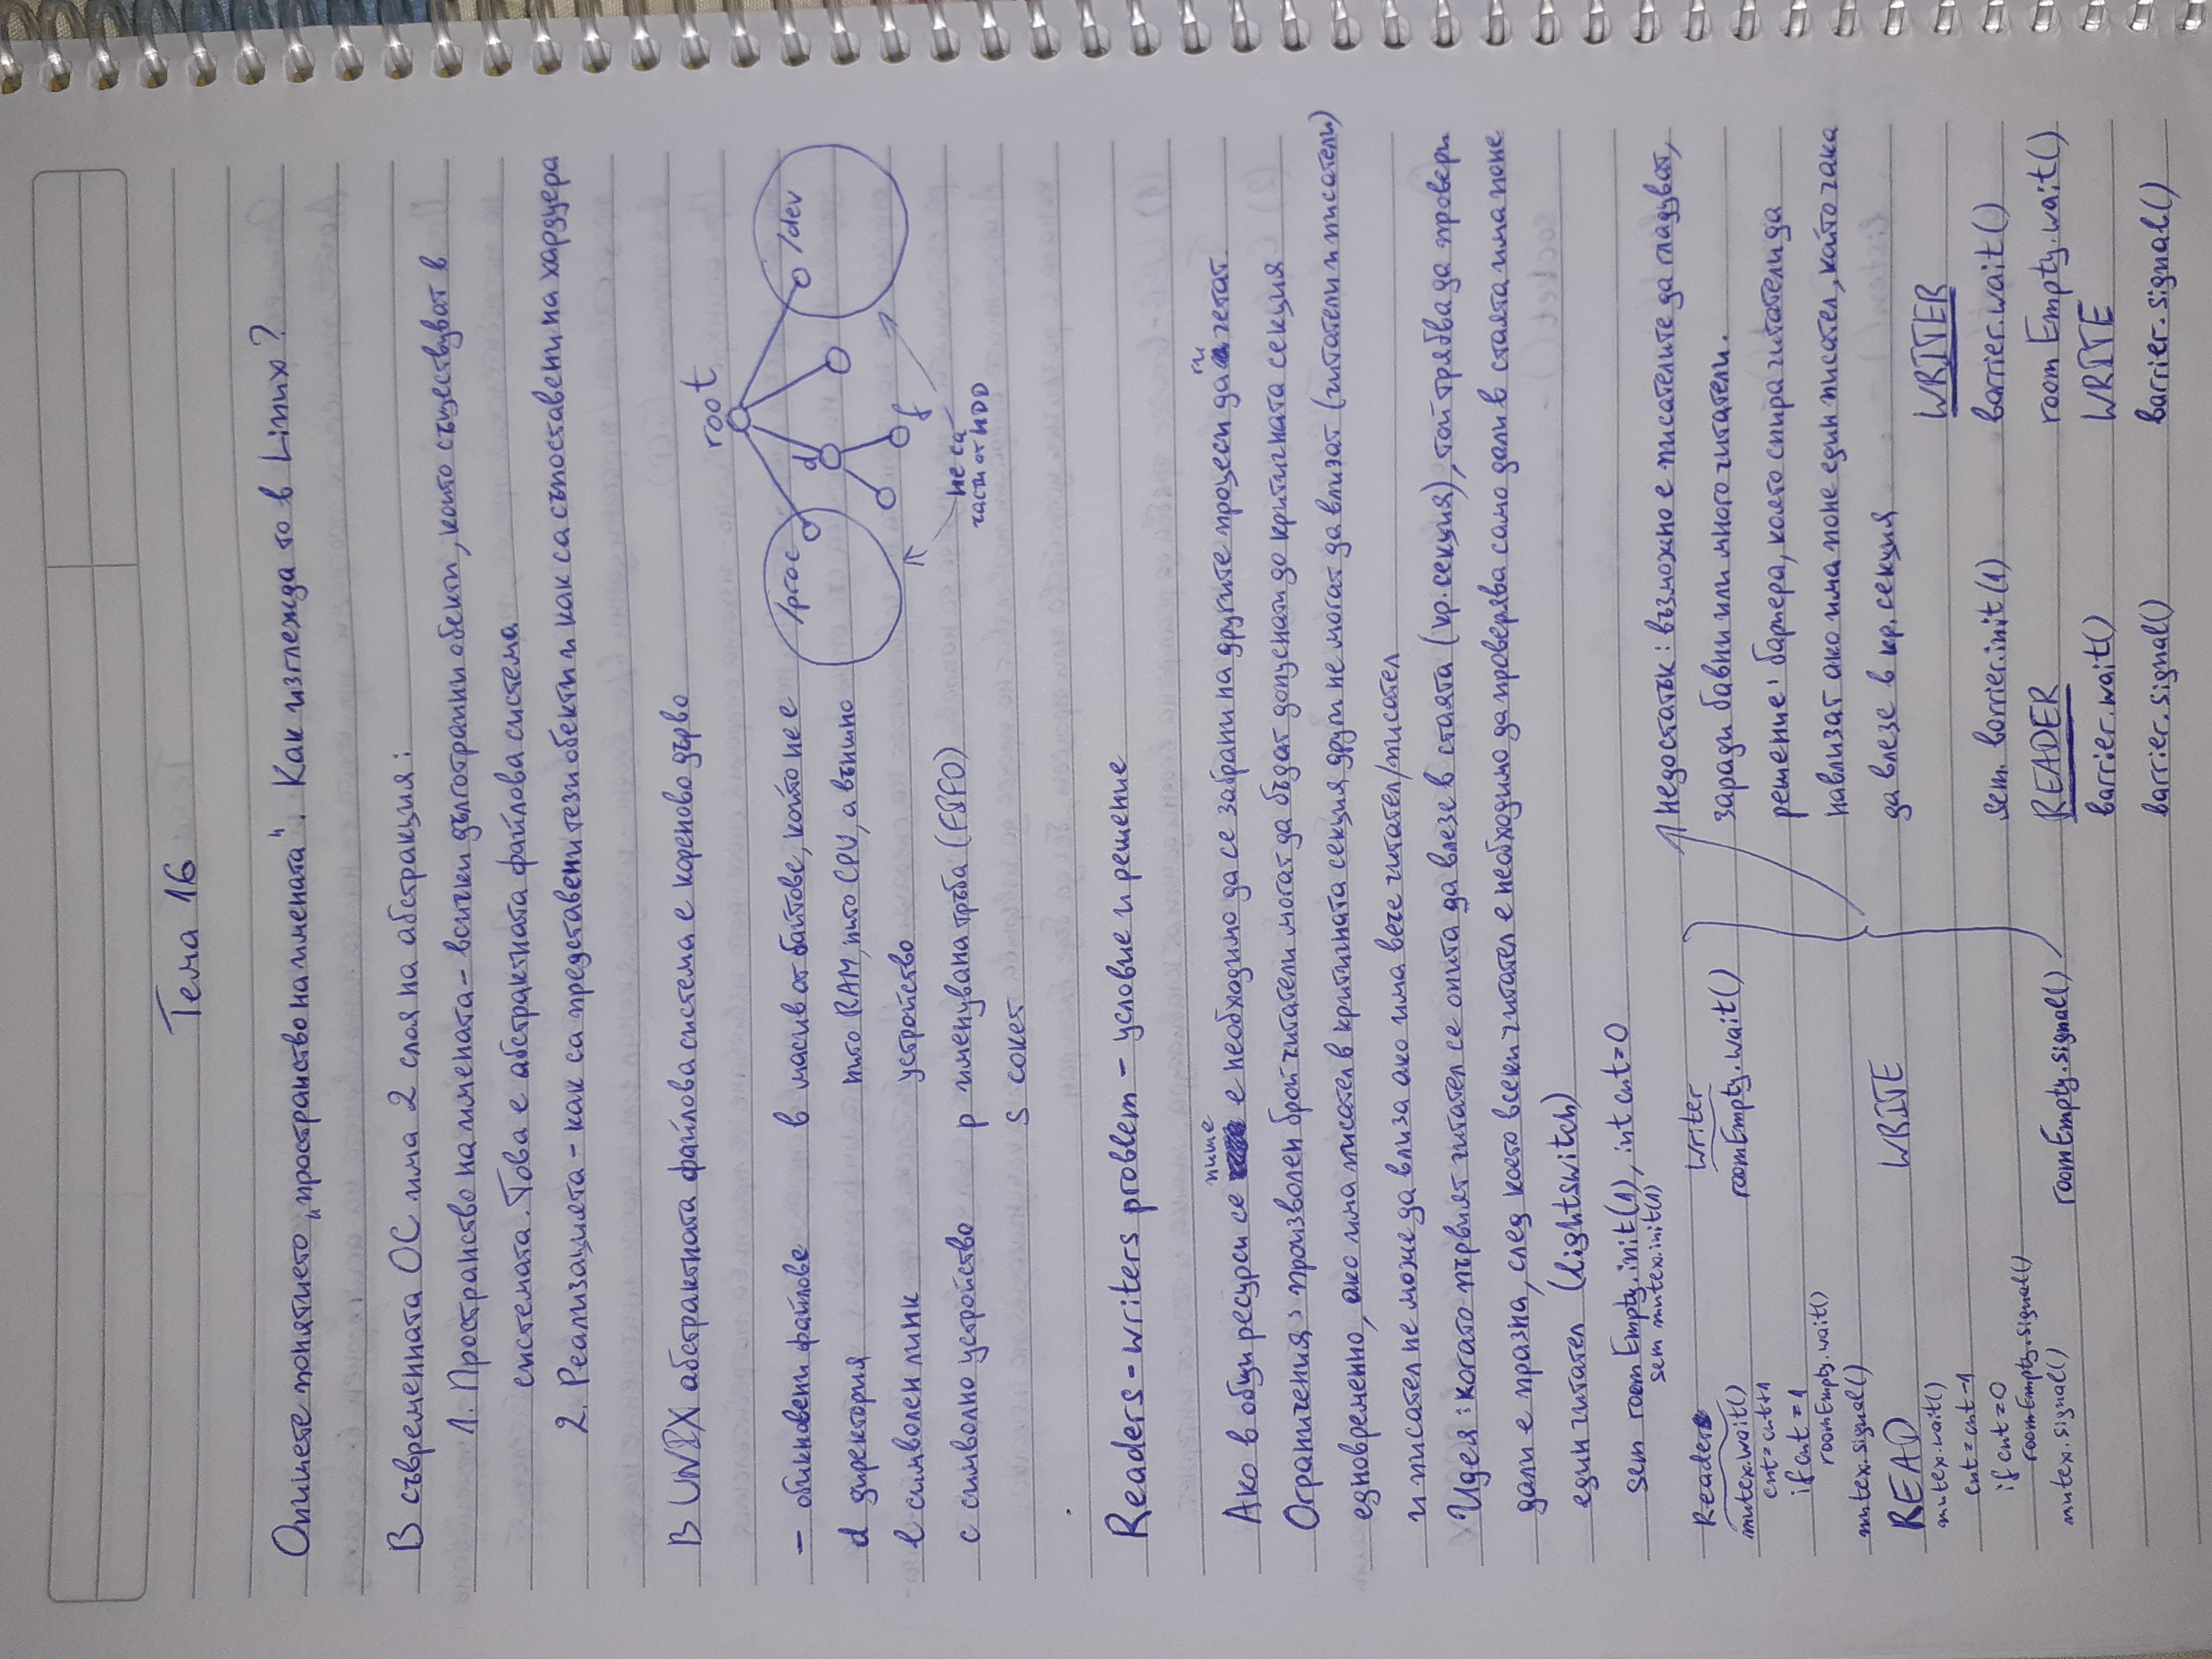 Тема 16
Опишете понятието „пространство на имената“. Как изглежда то в Linux?
В съвременната ОС има 2 слоя на абстракция:
1. Пространство на имената - всички дълготрайни обекти, които съществуват в
системата. Това е абстрактната файлова система
2. Реализацията - как са представени тези обекти и как са съпоставени на хардуера
В UNIX абстрактната файлова система е кореново дърво
- обикновени файлове
d директория
l символен линк
c символно устройство
b масив от байтове, който не е
нито RAM, нито CPU, а външно
устройство
p именувана тръба (FIFO)
s сокет
root
/proc
d
/dev
f
не са
части от HDD
Readers-writers problem - условие и решение
Ако в общи ресурси се пише е необходимо да се забрани на другите процеси да ги четат.
Ограничения: произволен брой читатели могат да бъдат допуснати до критичната секция
едновременно, ако има писател в критичната секция други не могат да влизат (читатели и писатели)
и писател не може да влиза ако има вече читател/писател
Идея: когато първият читател се опита да влезе в стаята (кр. секция), той трябва да провери
дали е празна, след което всеки читател е необходимо да проверява само дали в стаята има поне
един читател (lightswitch)
sem roomEmpty.init(1), int cnt=0
sem mutex.init(1)
Reader
mutex.wait()
cnt=cnt+1
if cnt=1
roomEmpty.wait()
mutex.signal()
READ
mutex.wait()
cnt=cnt-1
if cnt=0
roomEmpty.signal()
mutex.signal()
Writer
roomEmpty.wait()
WRITE
roomEmpty.signal()
недостатък: възможно е писателите да гладуват,
заради бавни или много читатели.
решение: бариера, която спира читатели да
навлизат ако има поне един писател, който чака
да влезе в кр. секция
sem barrier.init(1)
READER
barrier.wait()
barrier.signal()
WRITER
barrier.wait()
roomEmpty.wait()
WRITE
barrier.signal()